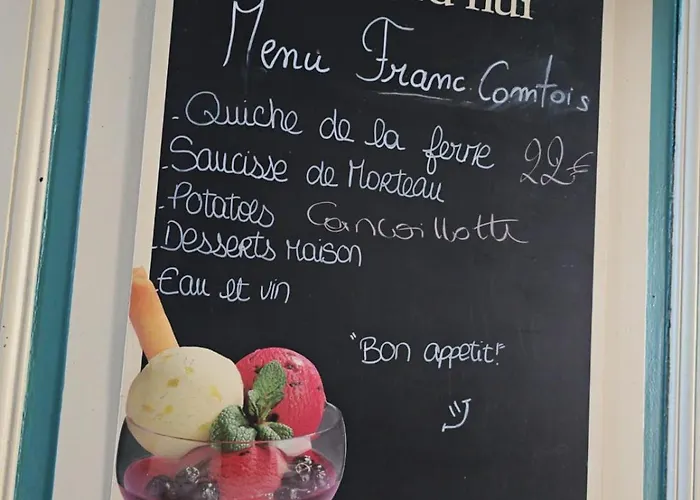 hui
Menu Franc Comtois
- Quiche de la ferme 22€
- Saucisse de Morteau
- Potatoes Cancoillotte
- Desserts Maison
- Eau et vin
"Bon appetit!"